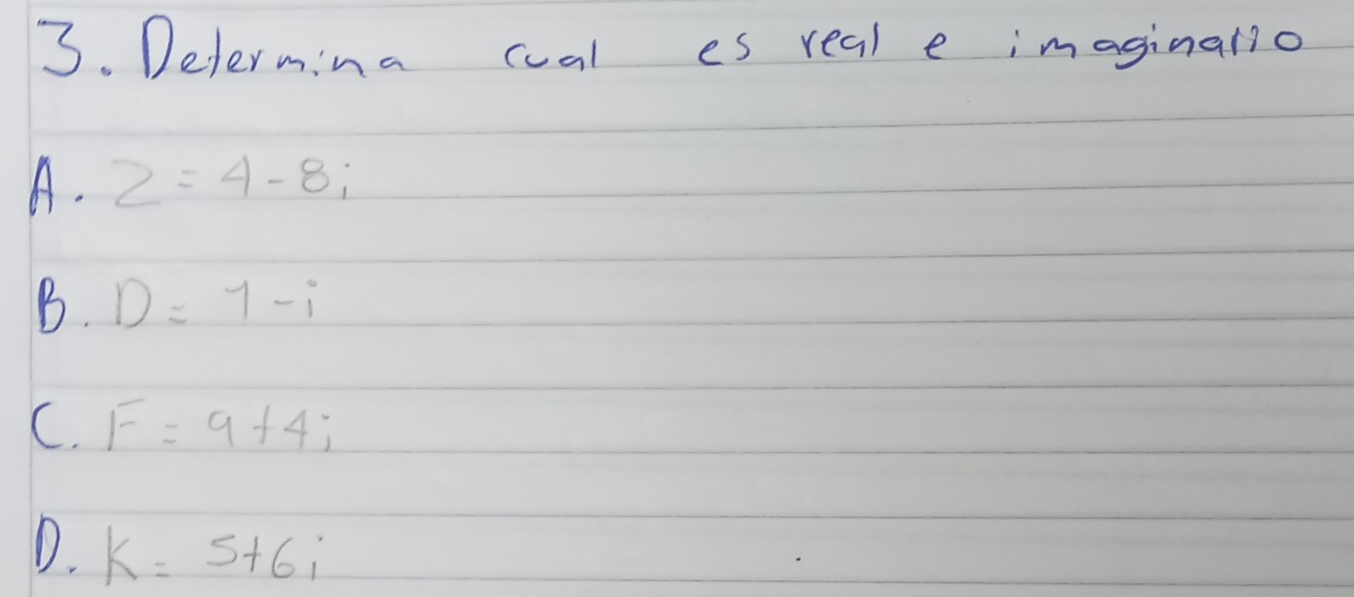 3. Determina cual es real e imaginario
A. Z = 4 - 8i
B. D = 1 - i
C. F = 9 + 4i
D. K = 5 + 6i